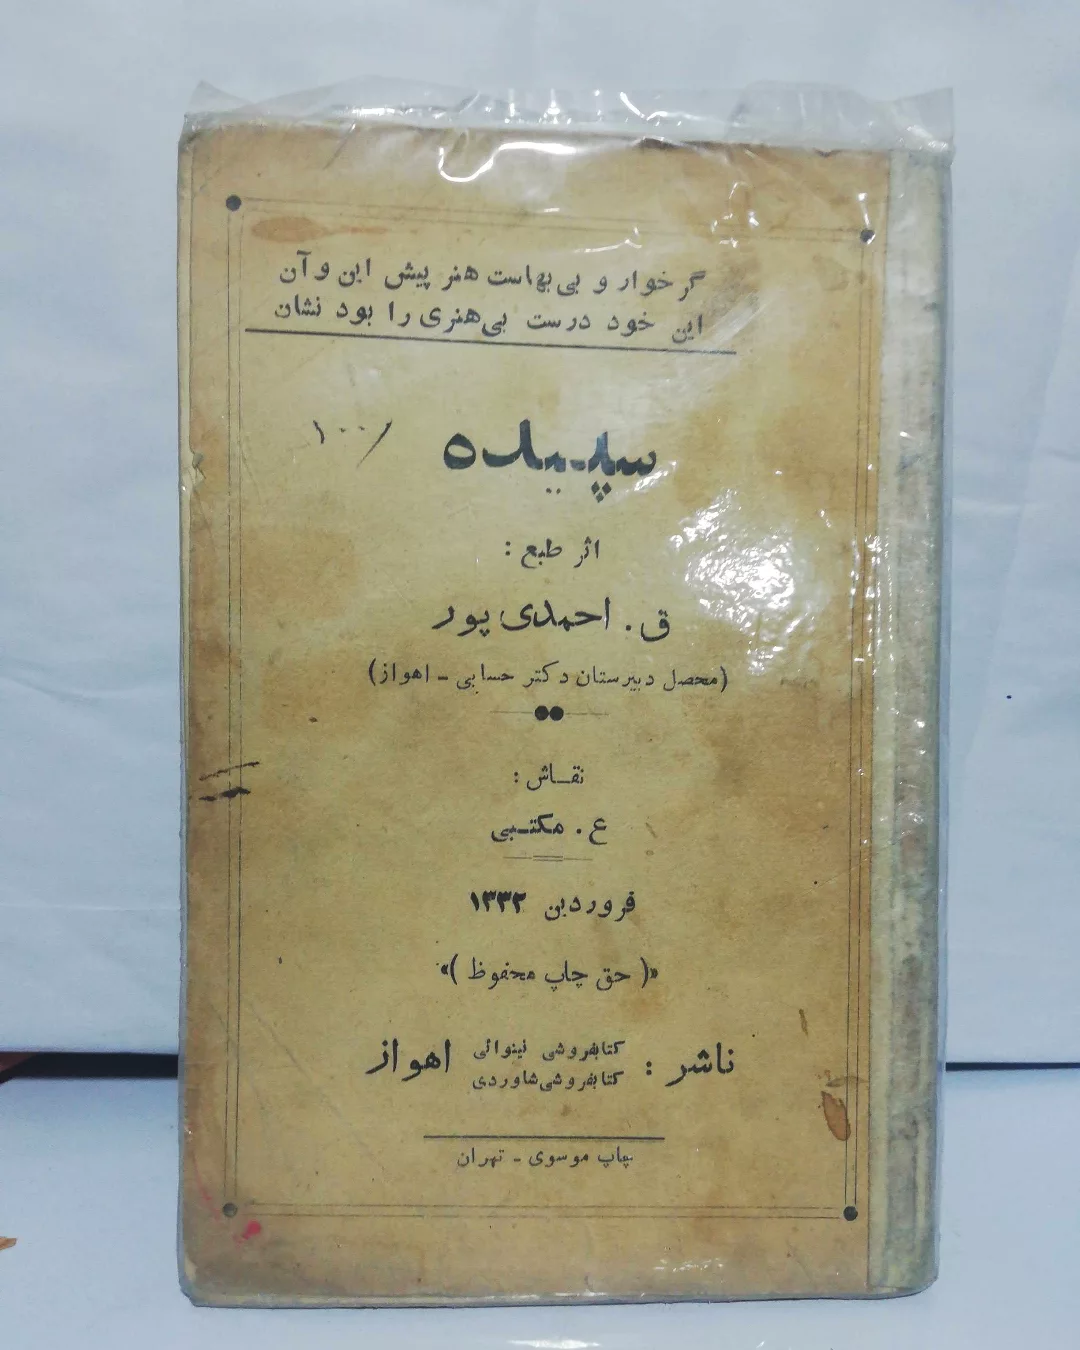 گر خوار و بی بهاست هنر پیش این و آن
این خود درست بی‌هنری را بود نشان
۱۰۰/
سپیده
اثر طبع :
ق . احمدی پور
(محصل دبیرستان دکتر حسابی - اهواز)
نقاش :
ع . مکتبی
فروردین ۱۳۳۲
«( حق چاپ محفوظ )»
ناشر : کتابفروشی نینوائی اهواز
کتابفروشی شاوردی
چاپ موسوی - تهران